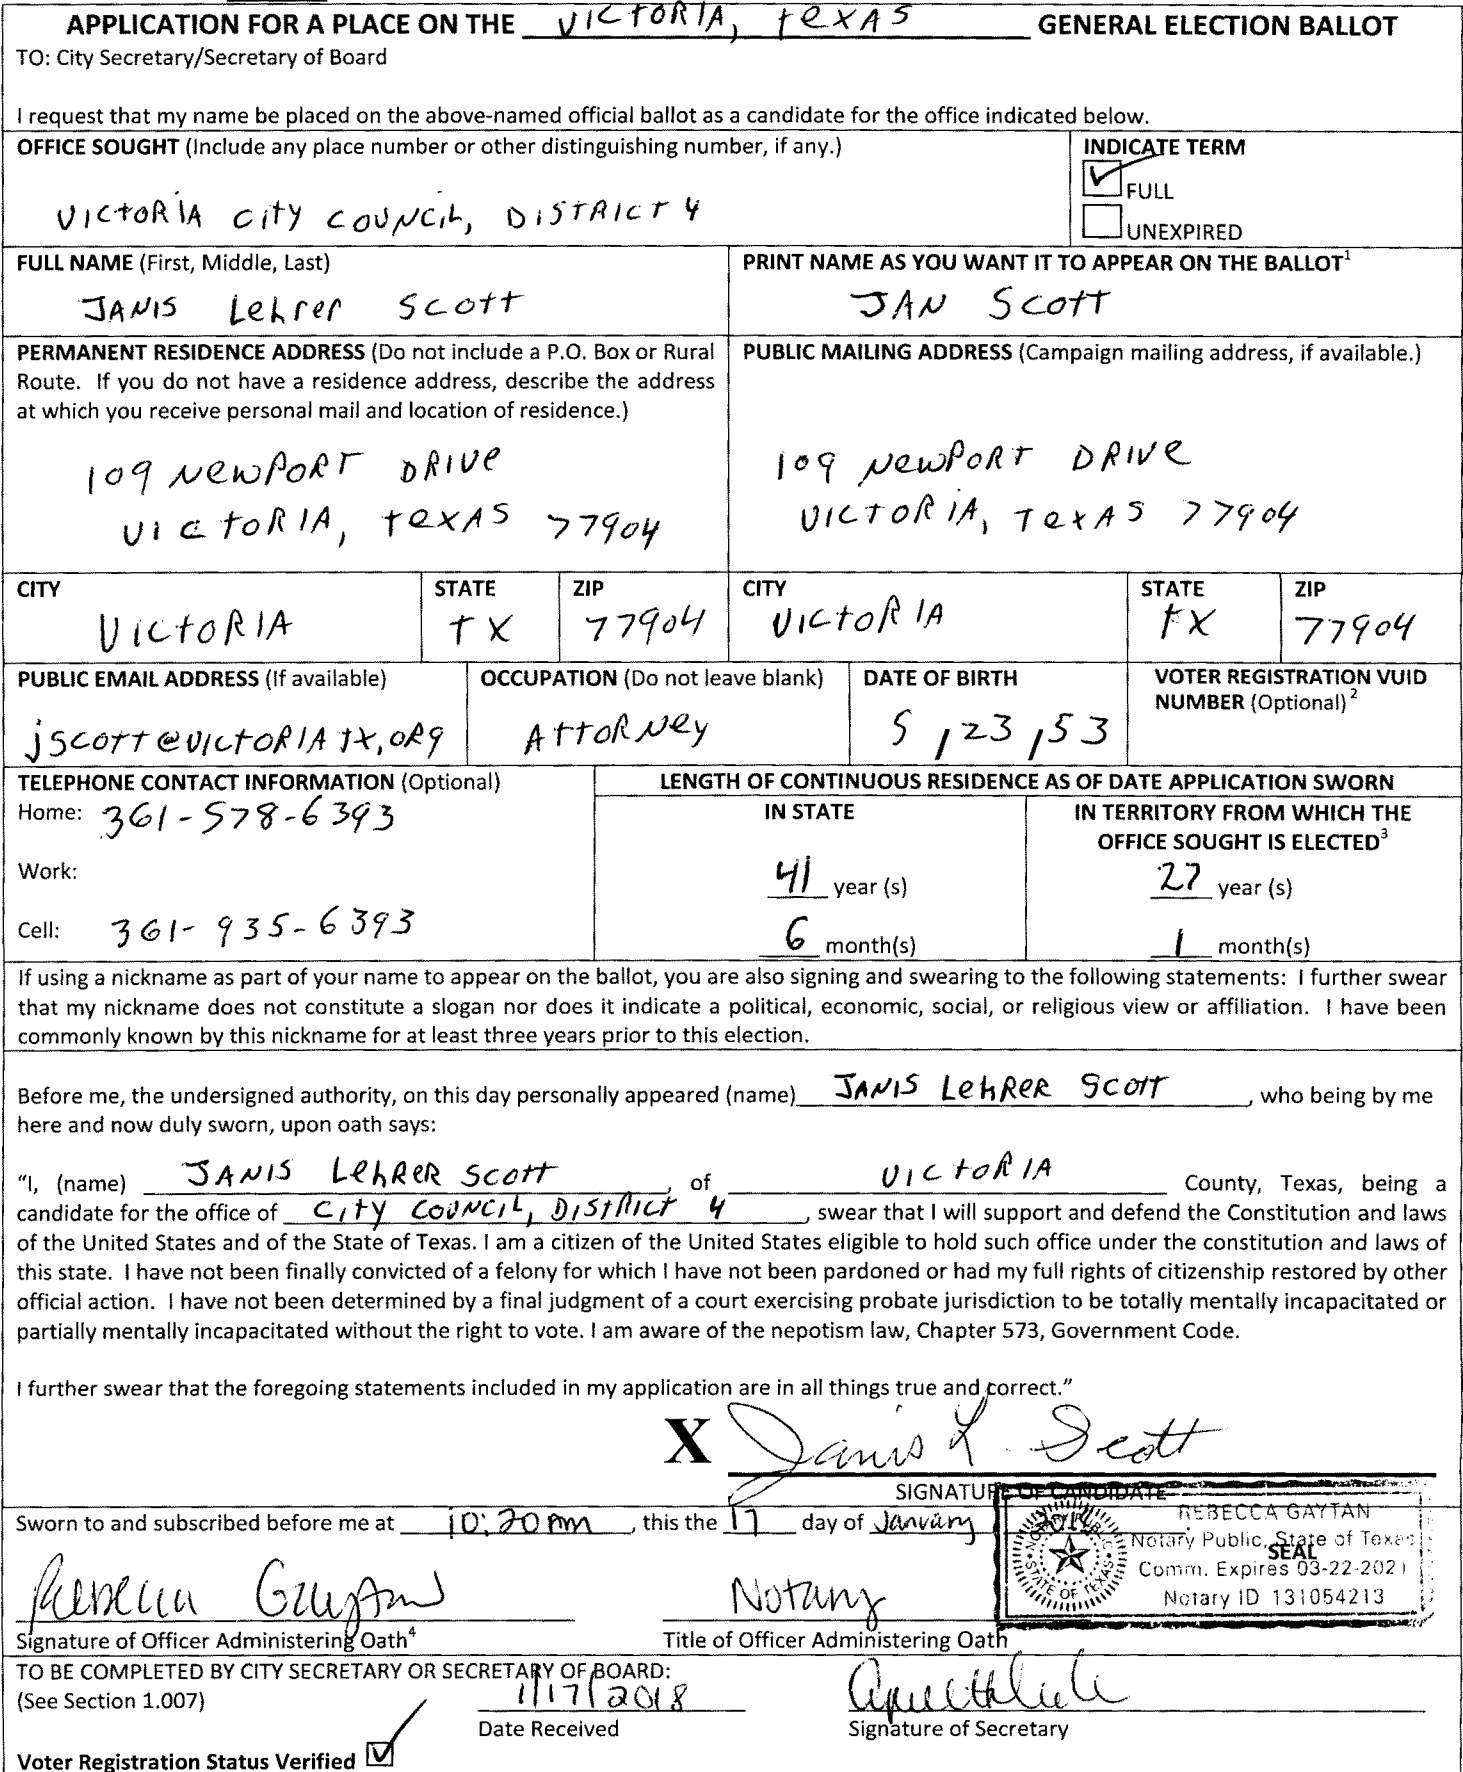 APPLICATION FOR A PLACE ON THE VICTORIA, TEXAS GENERAL ELECTION BALLOT
TO: City Secretary/Secretary of Board
I request that my name be placed on the above-named official ballot as a candidate for the office indicated below.
OFFICE SOUGHT (Include any place number or other distinguishing number, if any.)
VICTORIA CITY COUNCIL, DISTRICT 4
INDICATE TERM
FULL
UNEXPIRED
FULL NAME (First, Middle, Last)
JANIS Lehrer Scott
PRINT NAME AS YOU WANT IT TO APPEAR ON THE BALLOT1
JAN Scott
PERMANENT RESIDENCE ADDRESS (Do not include a P.O. Box or Rural
Route. If you do not have a residence address, describe the address
at which you receive personal mail and location of residence.)
109 NEWPORT DRIVE
VICTORIA, TEXAS 77904
PUBLIC MAILING ADDRESS (Campaign mailing address, if available.)
109 NEWPORT DRIVE
VICTORIA, TEXAS 77904
CITY
VICTORIA
STATE
TX
ZIP
77904
CITY
VICTORIA
STATE
TX
ZIP
77904
PUBLIC EMAIL ADDRESS (If available)
jscott@VICTORIATX.ORG
OCCUPATION (Do not leave blank)
ATTORNEY
DATE OF BIRTH
5 / 23 / 53
VOTER REGISTRATION VUID
NUMBER (Optional) 2
TELEPHONE CONTACT INFORMATION (Optional)
Home: 361-578-6393
Work:
Cell: 361-935-6393
LENGTH OF CONTINUOUS RESIDENCE AS OF DATE APPLICATION SWORN
IN STATE
41 year (s)
6 month(s)
IN TERRITORY FROM WHICH THE
OFFICE SOUGHT IS ELECTED3
27 year (s)
1 month(s)
If using a nickname as part of your name to appear on the ballot, you are also signing and swearing to the following statements: I further swear
that my nickname does not constitute a slogan nor does it indicate a political, economic, social, or religious view or affiliation. I have been
commonly known by this nickname for at least three years prior to this election.
Before me, the undersigned authority, on this day personally appeared (name) JANIS LEHRER SCOTT, who being by me
here and now duly sworn, upon oath says:
"I, (name) JANIS LEHRER SCOTT, of VICTORIA County, Texas, being a
candidate for the office of CITY COUNCIL, DISTRICT 4, swear that I will support and defend the Constitution and laws
of the United States and of the State of Texas. I am a citizen of the United States eligible to hold such office under the constitution and laws of
this state. I have not been finally convicted of a felony for which I have not been pardoned or had my full rights of citizenship restored by other
official action. I have not been determined by a final judgment of a court exercising probate jurisdiction to be totally mentally incapacitated or
partially mentally incapacitated without the right to vote. I am aware of the nepotism law, Chapter 573, Government Code.
I further swear that the foregoing statements included in my application are in all things true and correct."
X Janis L. Scott
SIGNATURE OF CANDIDATE
Sworn to and subscribed before me at 10:20 am, this the 17 day of January
REBECCA GAYTAN
Notary Public, State of Texas
SEAL
Comm. Expires 03-22-2021
Notary ID 131054213
NOTARY PUBLIC
STATE OF TEXAS
Rebecca Gaytan
Signature of Officer Administering Oath4
Notary
Title of Officer Administering Oath
TO BE COMPLETED BY CITY SECRETARY OR SECRETARY OF BOARD:
(See Section 1.007)
1/17/2018
Date Received
Signature of Secretary
Voter Registration Status Verified